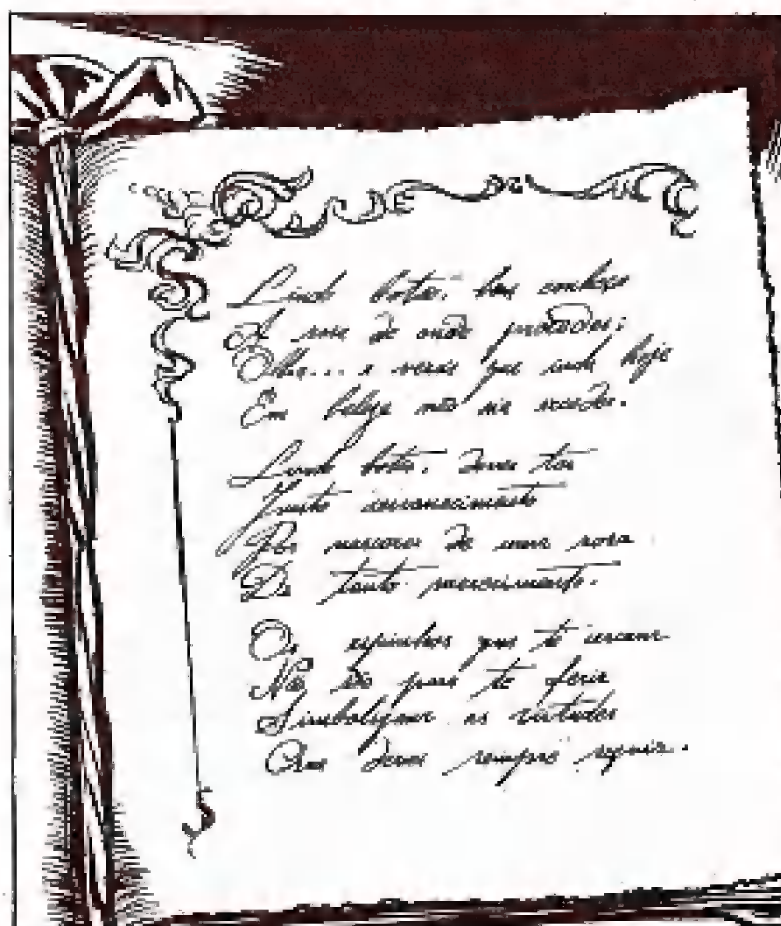 Lindo botão, bem conheço
A rosa de onde procedes;
Olha... e verás que inda hoje
Em beleza não a excedes.
Lindo botão, deves ter
Justo
Por nasceres de uma rosa
De tanto merecimento.
Os espinhos que te cercam
Não são para te ferir
Simbolizam as virtudes
Que deves sempre seguir.